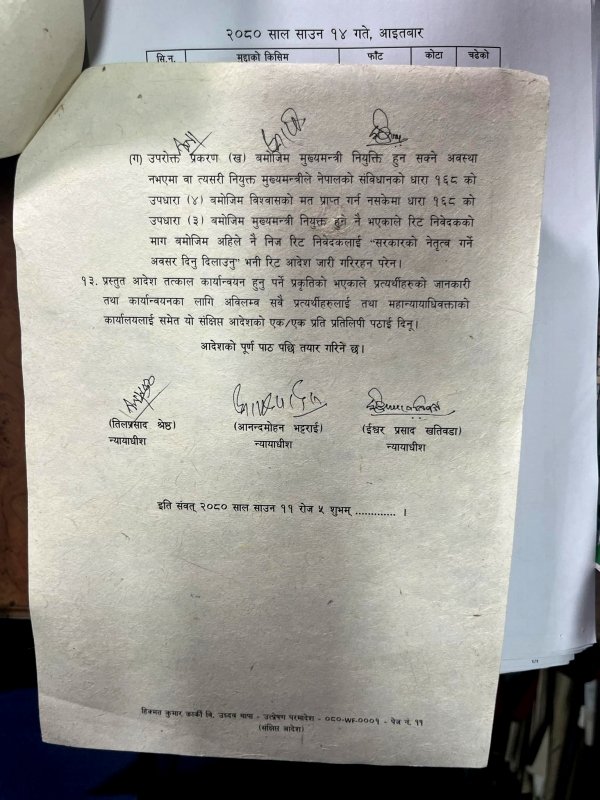 २०८० साल साउन १४ गते, आइतबार
सि.न. मुद्दाको किसिम फाँट कोटा चढेको
(ग) उपरोक्त प्रकरण (ख) बमोजिम मुख्यमन्त्री नियुक्ति हुन सक्ने अवस्था
नभएमा वा त्यसरी नियुक्त मुख्यमन्त्रीले नेपालको संविधानको धारा १६८ को
उपधारा (४) बमोजिम विश्वासको मत प्राप्त गर्न नसकेमा धारा १६८ को
उपधारा (३) बमोजिम मुख्यमन्त्री नियुक्त हुने नै भएकाले रिट निवेदकको
माग बमोजिम अहिले नै निज रिट निवेदकलाई "सरकारको नेतृत्व गर्ने
अवसर दिनु दिलाउनु" भनी रिट आदेश जारी गरिरहन परेन।
१३. प्रस्तुत आदेश तत्काल कार्यान्वयन हुनु पर्ने प्रकृतिको भएकाले प्रत्यर्थीहरुको जानकारी
तथा कार्यान्वयनका लागि अविलम्ब सबै प्रत्यर्थीहरुलाई तथा महान्यायाधिवक्ताको
कार्यालयलाई समेत यो संक्षिप्त आदेशको एक/एक प्रति प्रतिलिपी पठाई दिनू।
आदेशको पूर्ण पाठ पछि तयार गरिने छ।
(तिलप्रसाद श्रेष्ठ) (आनन्दमोहन भट्टराई) (ईश्वर प्रसाद खतिवडा)
न्यायाधीश न्यायाधीश न्यायाधीश
इति संवत् २०८० साल साउन ११ रोज ५ शुभम् ............. ।
हिक्मत कुमार कार्की वि. उध्दव थापा - उत्प्रेषण परमादेश - ०८०-WF-०००१ - पेज नं. ११
(संक्षिप्त आदेश)